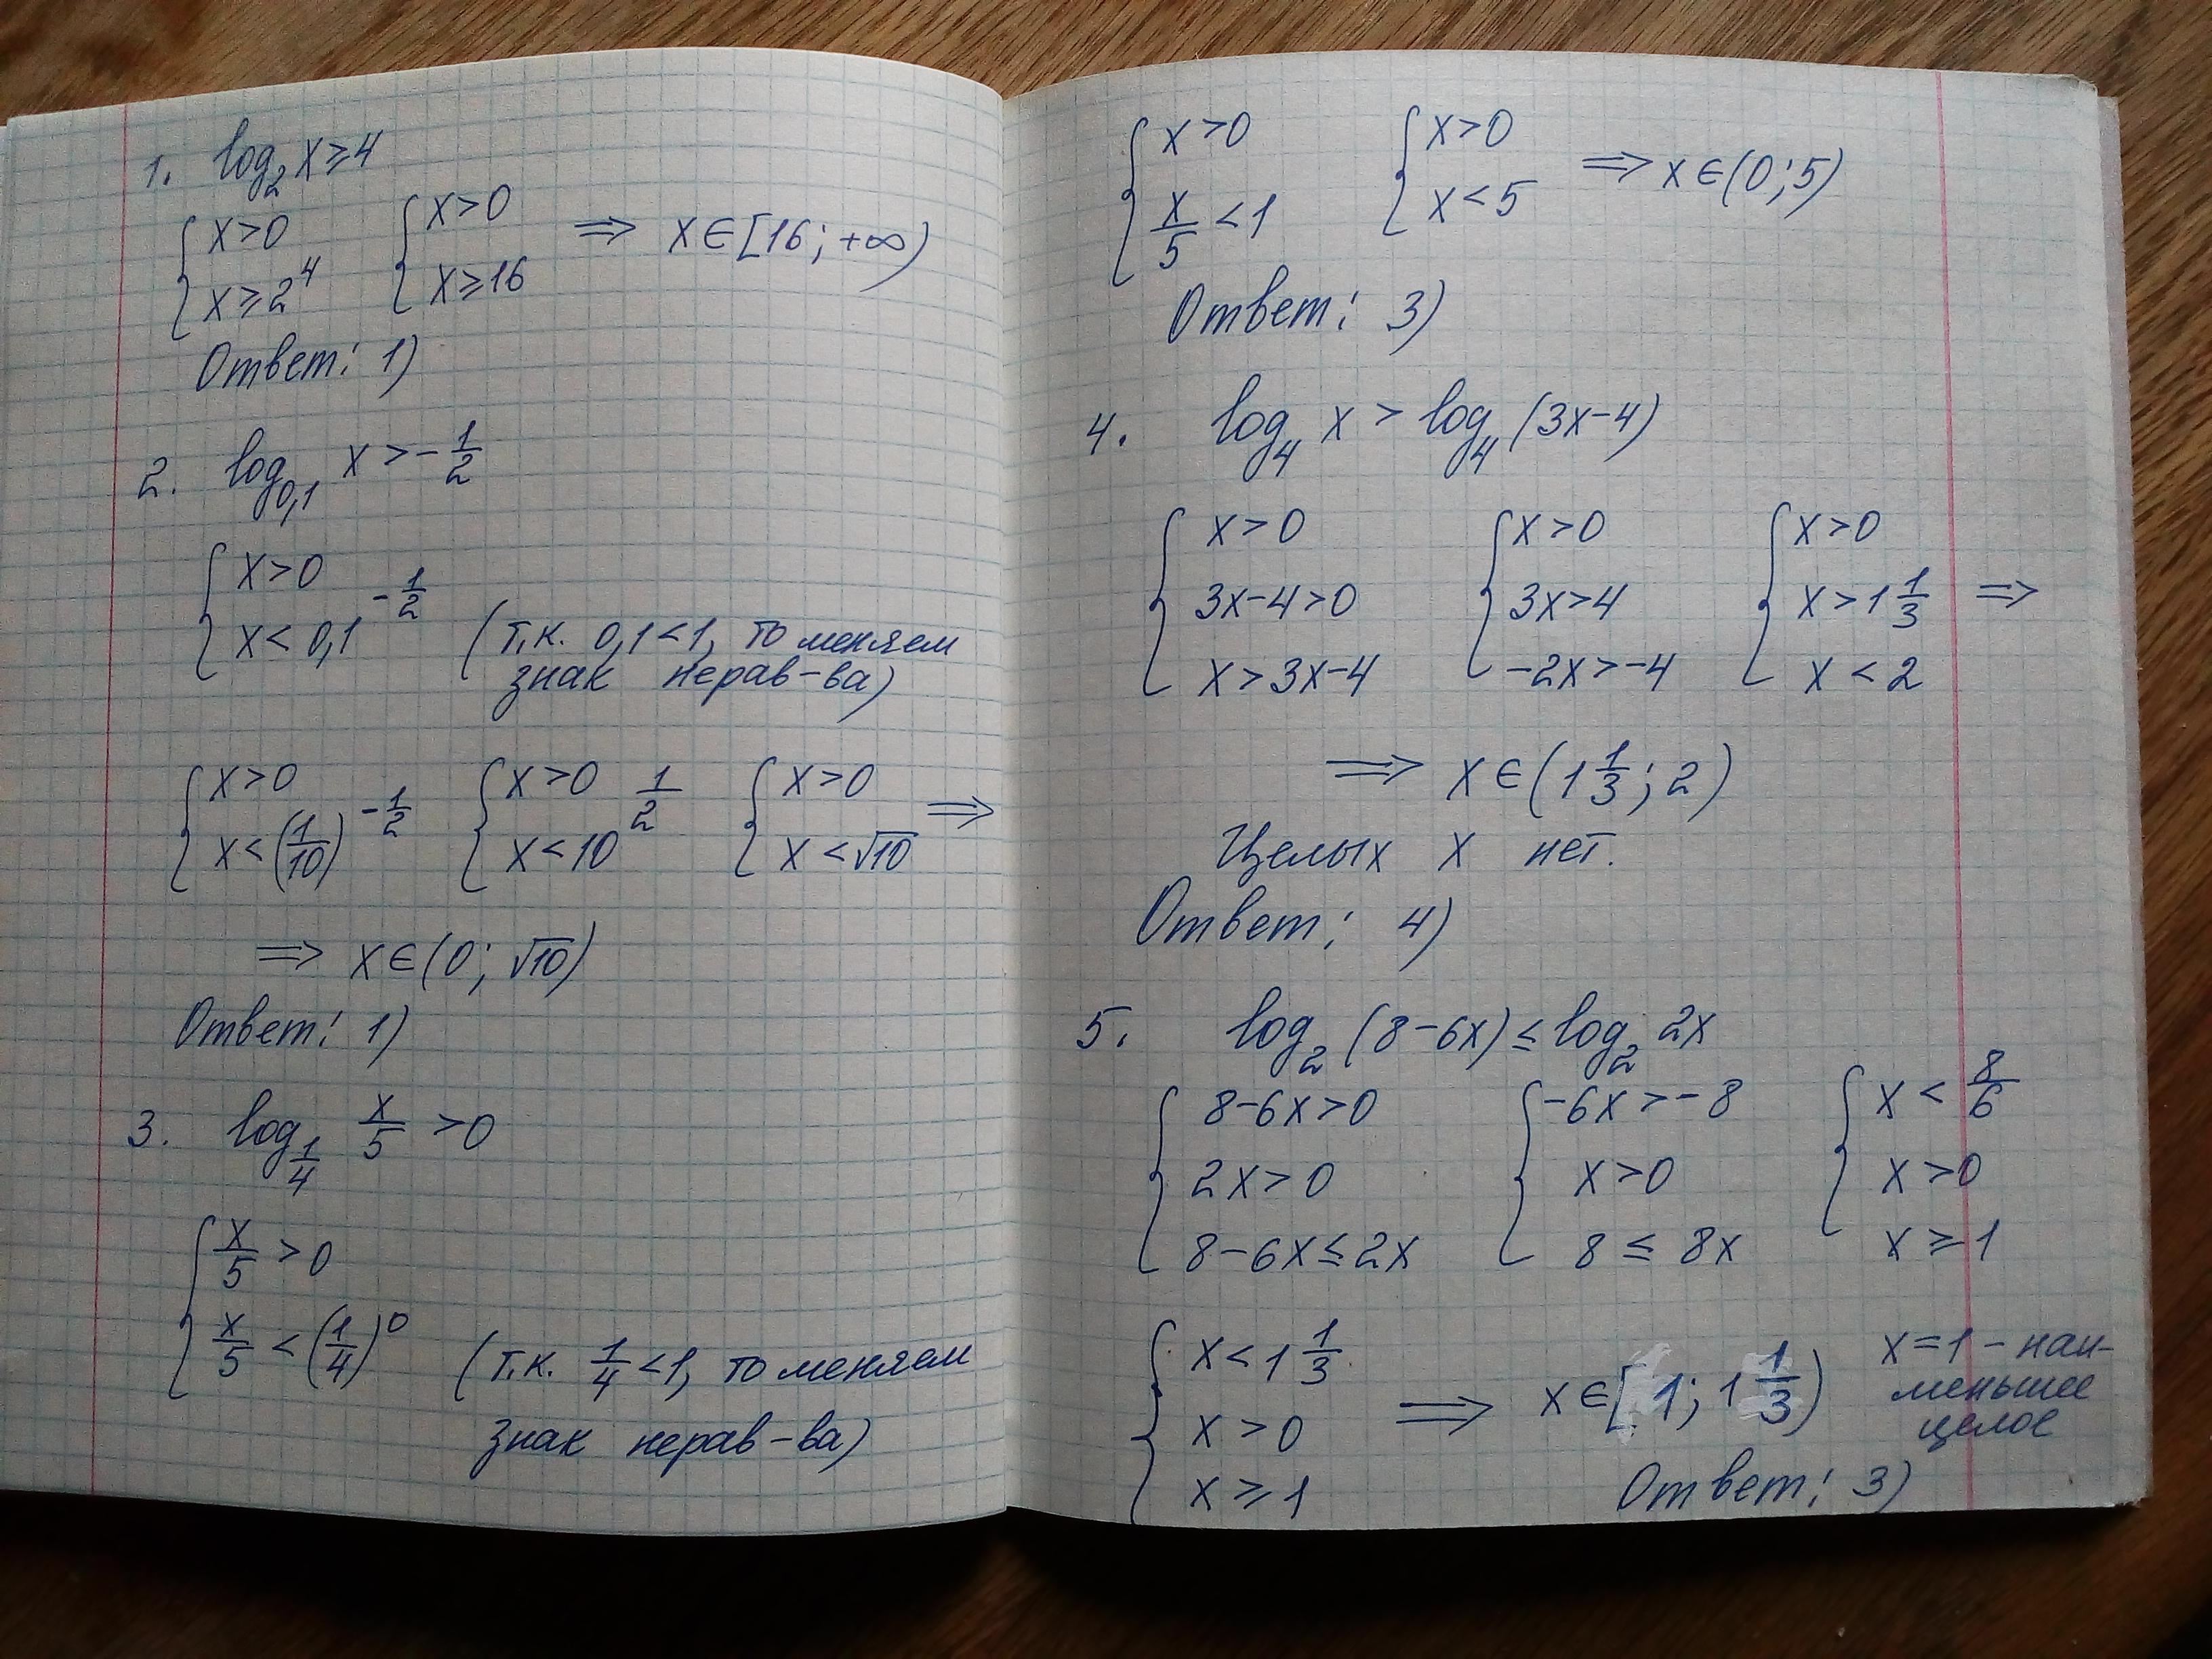 1. log₂ x ≥ 4
{ x > 0 { x > 0 ⇒ x ∈ [16; +∞)
x ≥ 2⁴ x ≥ 16
Ответ: 1)
2. log₀,₁ x > -1/2
{ x > 0
x < 0,1^(-1/2) (т.к. 0,1 < 1, то меняем
знак нерав-ва)
{ x > 0 { x > 0 { x > 0 ⇒
x < (1/10)^(-1/2) x < 10^(1/2) x < √10
⇒ x ∈ (0; √10)
Ответ: 1)
3. log_(1/4) x/5 > 0
{ x/5 > 0
x/5 < (1/4)⁰ (т.к. 1/4 < 1, то меняем
знак нерав-ва)
{ x > 0 { x > 0 ⇒ x ∈ (0; 5)
x/5 < 1 x < 5
Ответ: 3)
4. log₄ x > log₄ (3x-4)
{ x > 0 { x > 0 { x > 0
3x-4 > 0 3x > 4 x > 1 1/3 ⇒
x > 3x-4 -2x > -4 x < 2
⇒ x ∈ (1 1/3; 2)
Целых x нет.
Ответ: 4)
5. log₂ (8-6x) ≤ log₂ 2x
{ 8-6x > 0 { -6x > -8 { x < 8/6
2x > 0 x > 0 x > 0
8-6x ≤ 2x 8 ≤ 8x x ≥ 1
{ x < 1 1/3
x > 0 ⇒ x ∈ [1; 1 1/3)
x ≥ 1
x = 1 - наи-
меньшее
целое
Ответ: 3)